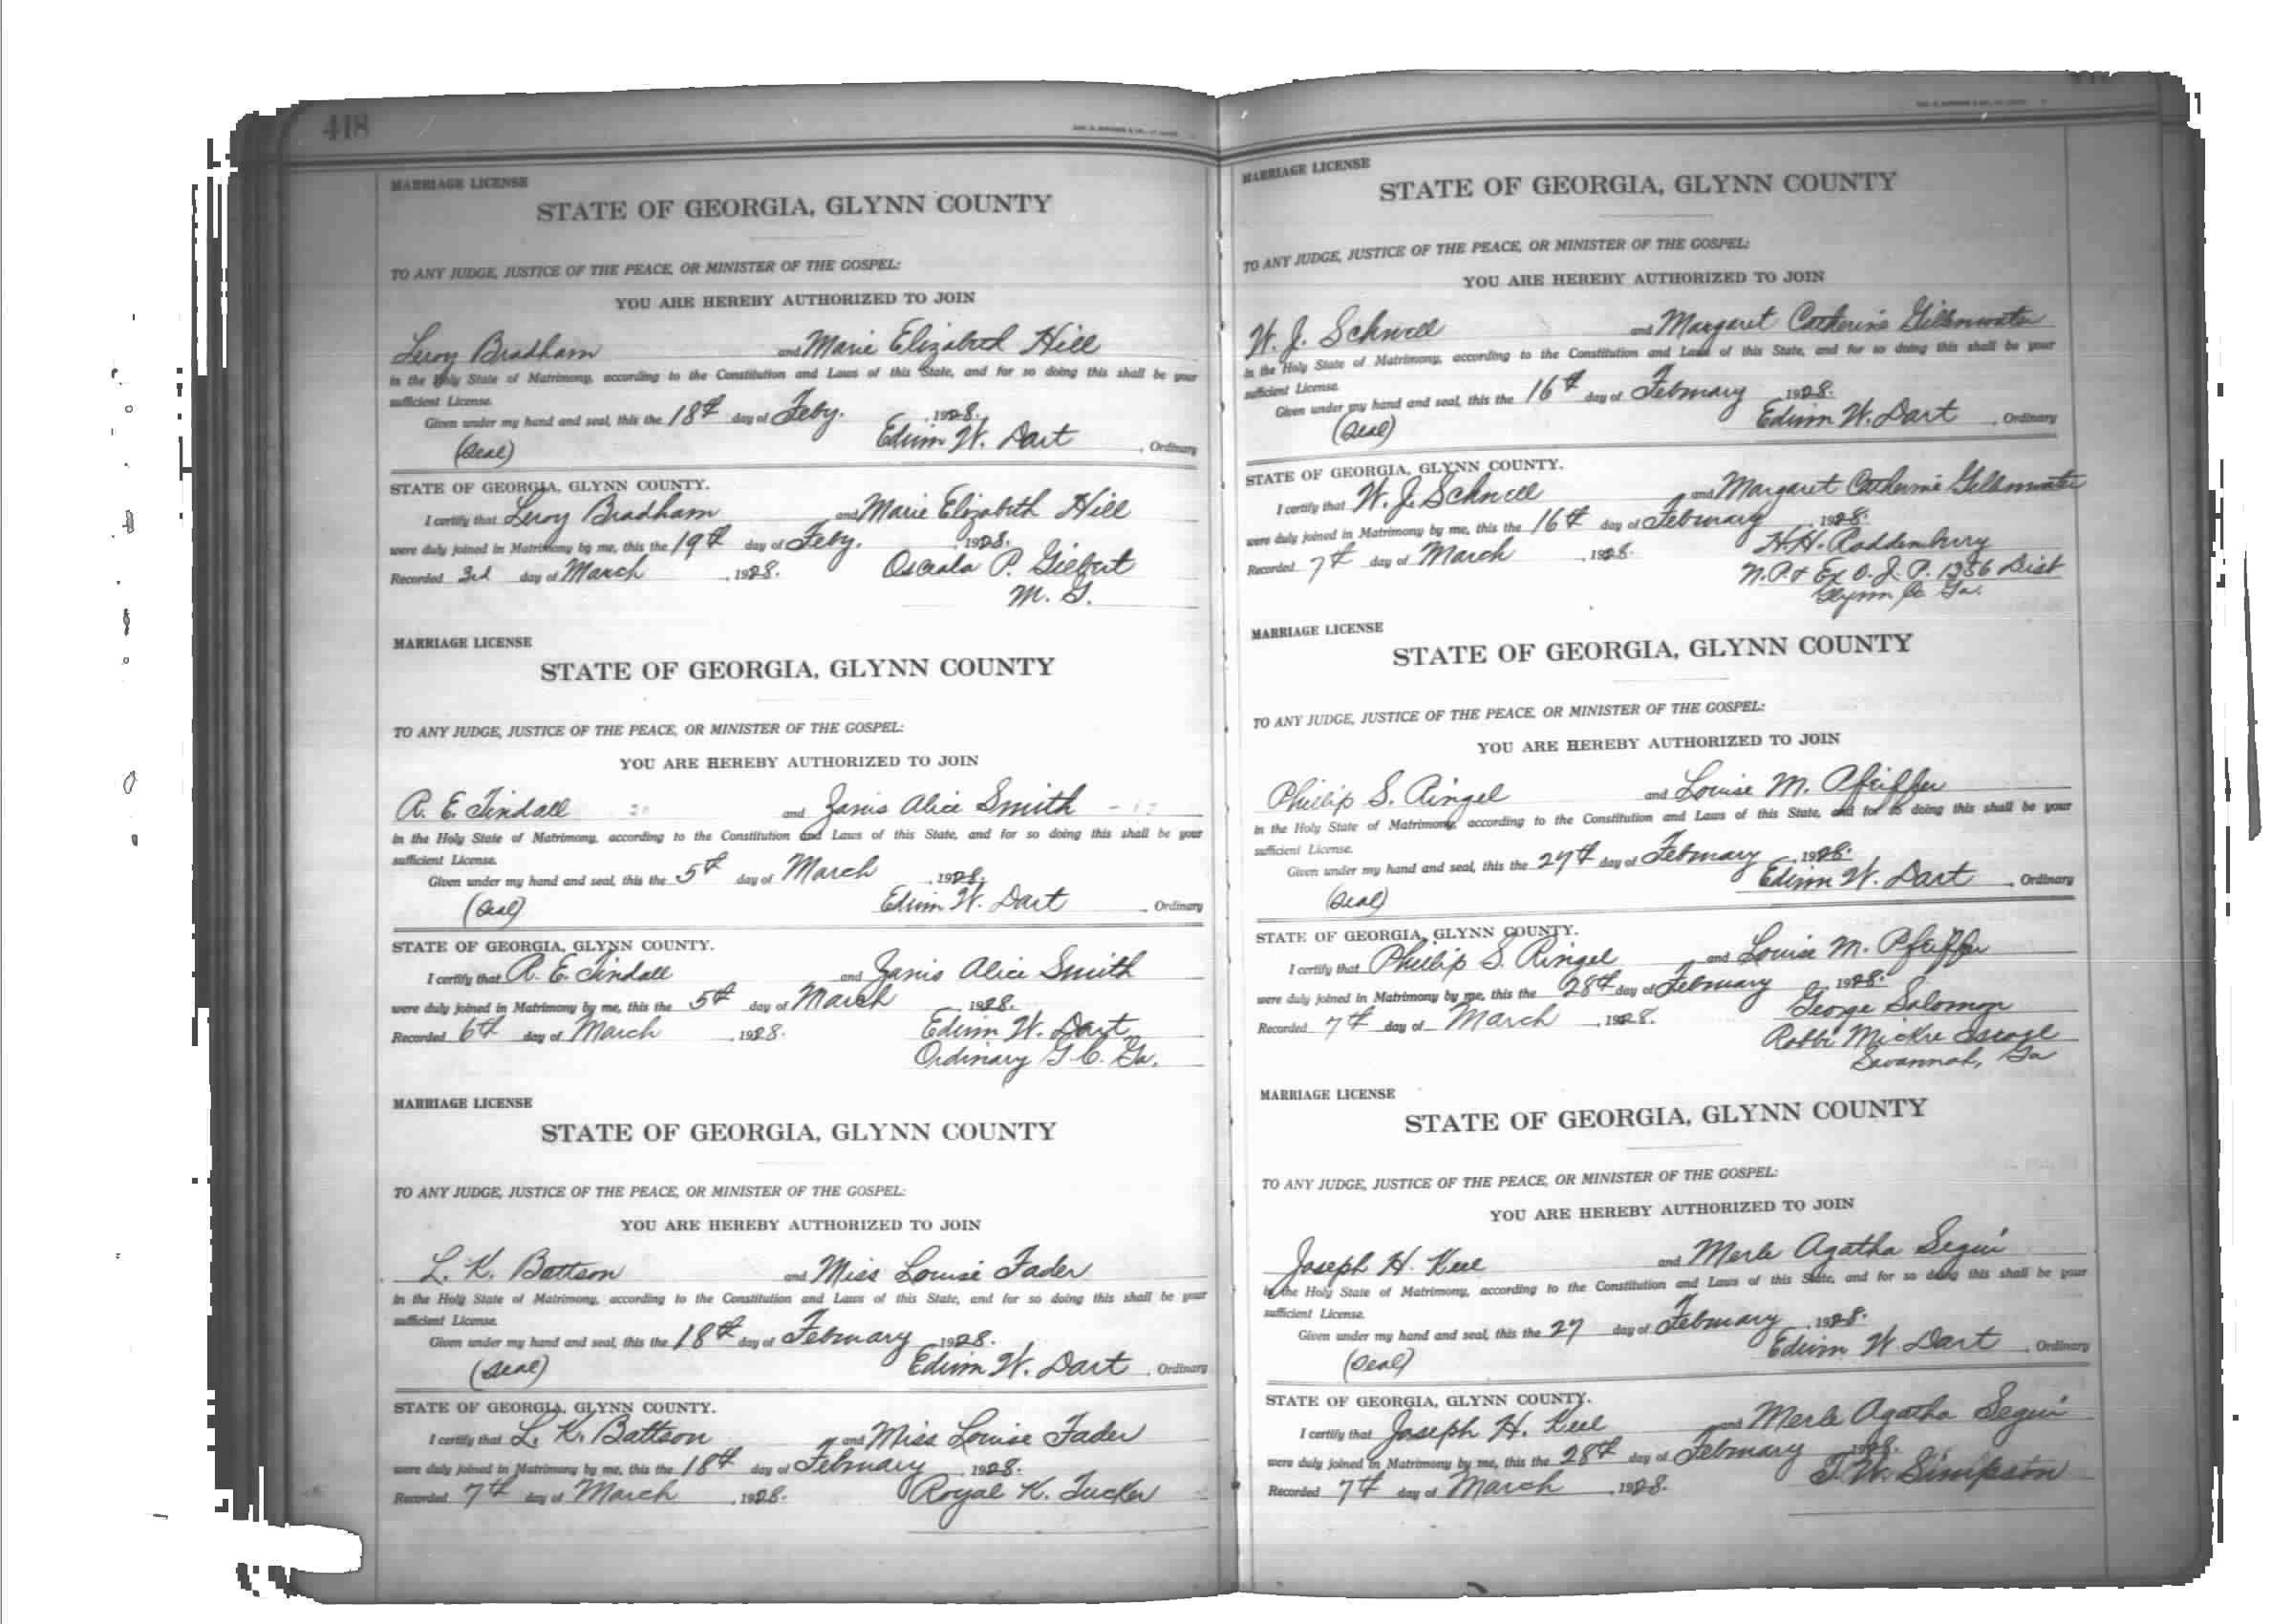 418
MARRIAGE LICENSE
STATE OF GEORGIA, GLYNN COUNTY
TO ANY JUDGE, JUSTICE OF THE PEACE, OR MINISTER OF THE GOSPEL:
YOU ARE HEREBY AUTHORIZED TO JOIN
Leroy Bradham and Marie Elizabeth Hill
in the Holy State of Matrimony, according to the Constitution and Laws of this State, and for so doing this shall be your
sufficient License.
Given under my hand and seal, this the 18th day of Feby. , 1928.
(Seal) Edwin W. Dart , Ordinary
STATE OF GEORGIA, GLYNN COUNTY.
I certify that Leroy Bradham and Marie Elizabeth Hill
were duly joined in Matrimony by me, this the 19th day of Feby. , 1928.
Recorded 3rd day of March , 1928. Osceola P. Gilbert
M. G.
MARRIAGE LICENSE
STATE OF GEORGIA, GLYNN COUNTY
TO ANY JUDGE, JUSTICE OF THE PEACE, OR MINISTER OF THE GOSPEL:
YOU ARE HEREBY AUTHORIZED TO JOIN
R. E. Tindall and Janis Alice Smith
in the Holy State of Matrimony, according to the Constitution and Laws of this State, and for so doing this shall be your
sufficient License.
Given under my hand and seal, this the 5th day of March , 1928.
(Seal) Edwin W. Dart , Ordinary
STATE OF GEORGIA, GLYNN COUNTY.
I certify that R. E. Tindall and Janis Alice Smith
were duly joined in Matrimony by me, this the 5th day of March , 1928.
Recorded 6th day of March , 1928. Edwin W. Dart
Ordinary G. C. Ga.
MARRIAGE LICENSE
STATE OF GEORGIA, GLYNN COUNTY
TO ANY JUDGE, JUSTICE OF THE PEACE, OR MINISTER OF THE GOSPEL:
YOU ARE HEREBY AUTHORIZED TO JOIN
L. K. Battson and Miss Louise Fader
in the Holy State of Matrimony, according to the Constitution and Laws of this State, and for so doing this shall be your
sufficient License.
Given under my hand and seal, this the 18th day of February , 1928.
(Seal) Edwin W. Dart , Ordinary
STATE OF GEORGIA, GLYNN COUNTY.
I certify that L. K. Battson and Miss Louise Fader
were duly joined in Matrimony by me, this the 18th day of February , 1928.
Recorded 7th day of March , 1928. Royal K. Tucker
MARRIAGE LICENSE
STATE OF GEORGIA, GLYNN COUNTY
TO ANY JUDGE, JUSTICE OF THE PEACE, OR MINISTER OF THE GOSPEL:
YOU ARE HEREBY AUTHORIZED TO JOIN
W. J. Schnell and Margaret Catherine Gillenwater
in the Holy State of Matrimony, according to the Constitution and Laws of this State, and for so doing this shall be your
sufficient License.
Given under my hand and seal, this the 16th day of February , 1928.
(Seal) Edwin W. Dart , Ordinary
STATE OF GEORGIA, GLYNN COUNTY.
I certify that W. J. Schnell and Margaret Catherine Gillenwater
were duly joined in Matrimony by me, this the 16th day of February , 1928.
Recorded 7th day of March , 1928. H. H. Raddenbury
N. P. & Ex O. J. P. 1356 Dist
Glynn Co Ga.
MARRIAGE LICENSE
STATE OF GEORGIA, GLYNN COUNTY
TO ANY JUDGE, JUSTICE OF THE PEACE, OR MINISTER OF THE GOSPEL:
YOU ARE HEREBY AUTHORIZED TO JOIN
Phillip S. Ringel and Louise M. Pfeiffer
in the Holy State of Matrimony, according to the Constitution and Laws of this State, and for so doing this shall be your
sufficient License.
Given under my hand and seal, this the 27th day of February , 1928.
(Seal) Edwin W. Dart , Ordinary
STATE OF GEORGIA, GLYNN COUNTY.
I certify that Phillip S. Ringel and Louise M. Pfeiffer
were duly joined in Matrimony by me, this the 28th day of February , 1928.
Recorded 7th day of March , 1928. George Solomon
Rabbi Mickve Israel
Savannah, Ga
MARRIAGE LICENSE
STATE OF GEORGIA, GLYNN COUNTY
TO ANY JUDGE, JUSTICE OF THE PEACE, OR MINISTER OF THE GOSPEL:
YOU ARE HEREBY AUTHORIZED TO JOIN
Joseph H. Keel and Merle Agatha Segui
in the Holy State of Matrimony, according to the Constitution and Laws of this State, and for so doing this shall be your
sufficient License.
Given under my hand and seal, this the 27 day of February , 1928.
(Seal) Edwin W. Dart , Ordinary
STATE OF GEORGIA, GLYNN COUNTY.
I certify that Joseph H. Keel and Merle Agatha Segui
were duly joined in Matrimony by me, this the 28th day of February 1928.
Recorded 7th day of March , 1928. T. W. Simpson